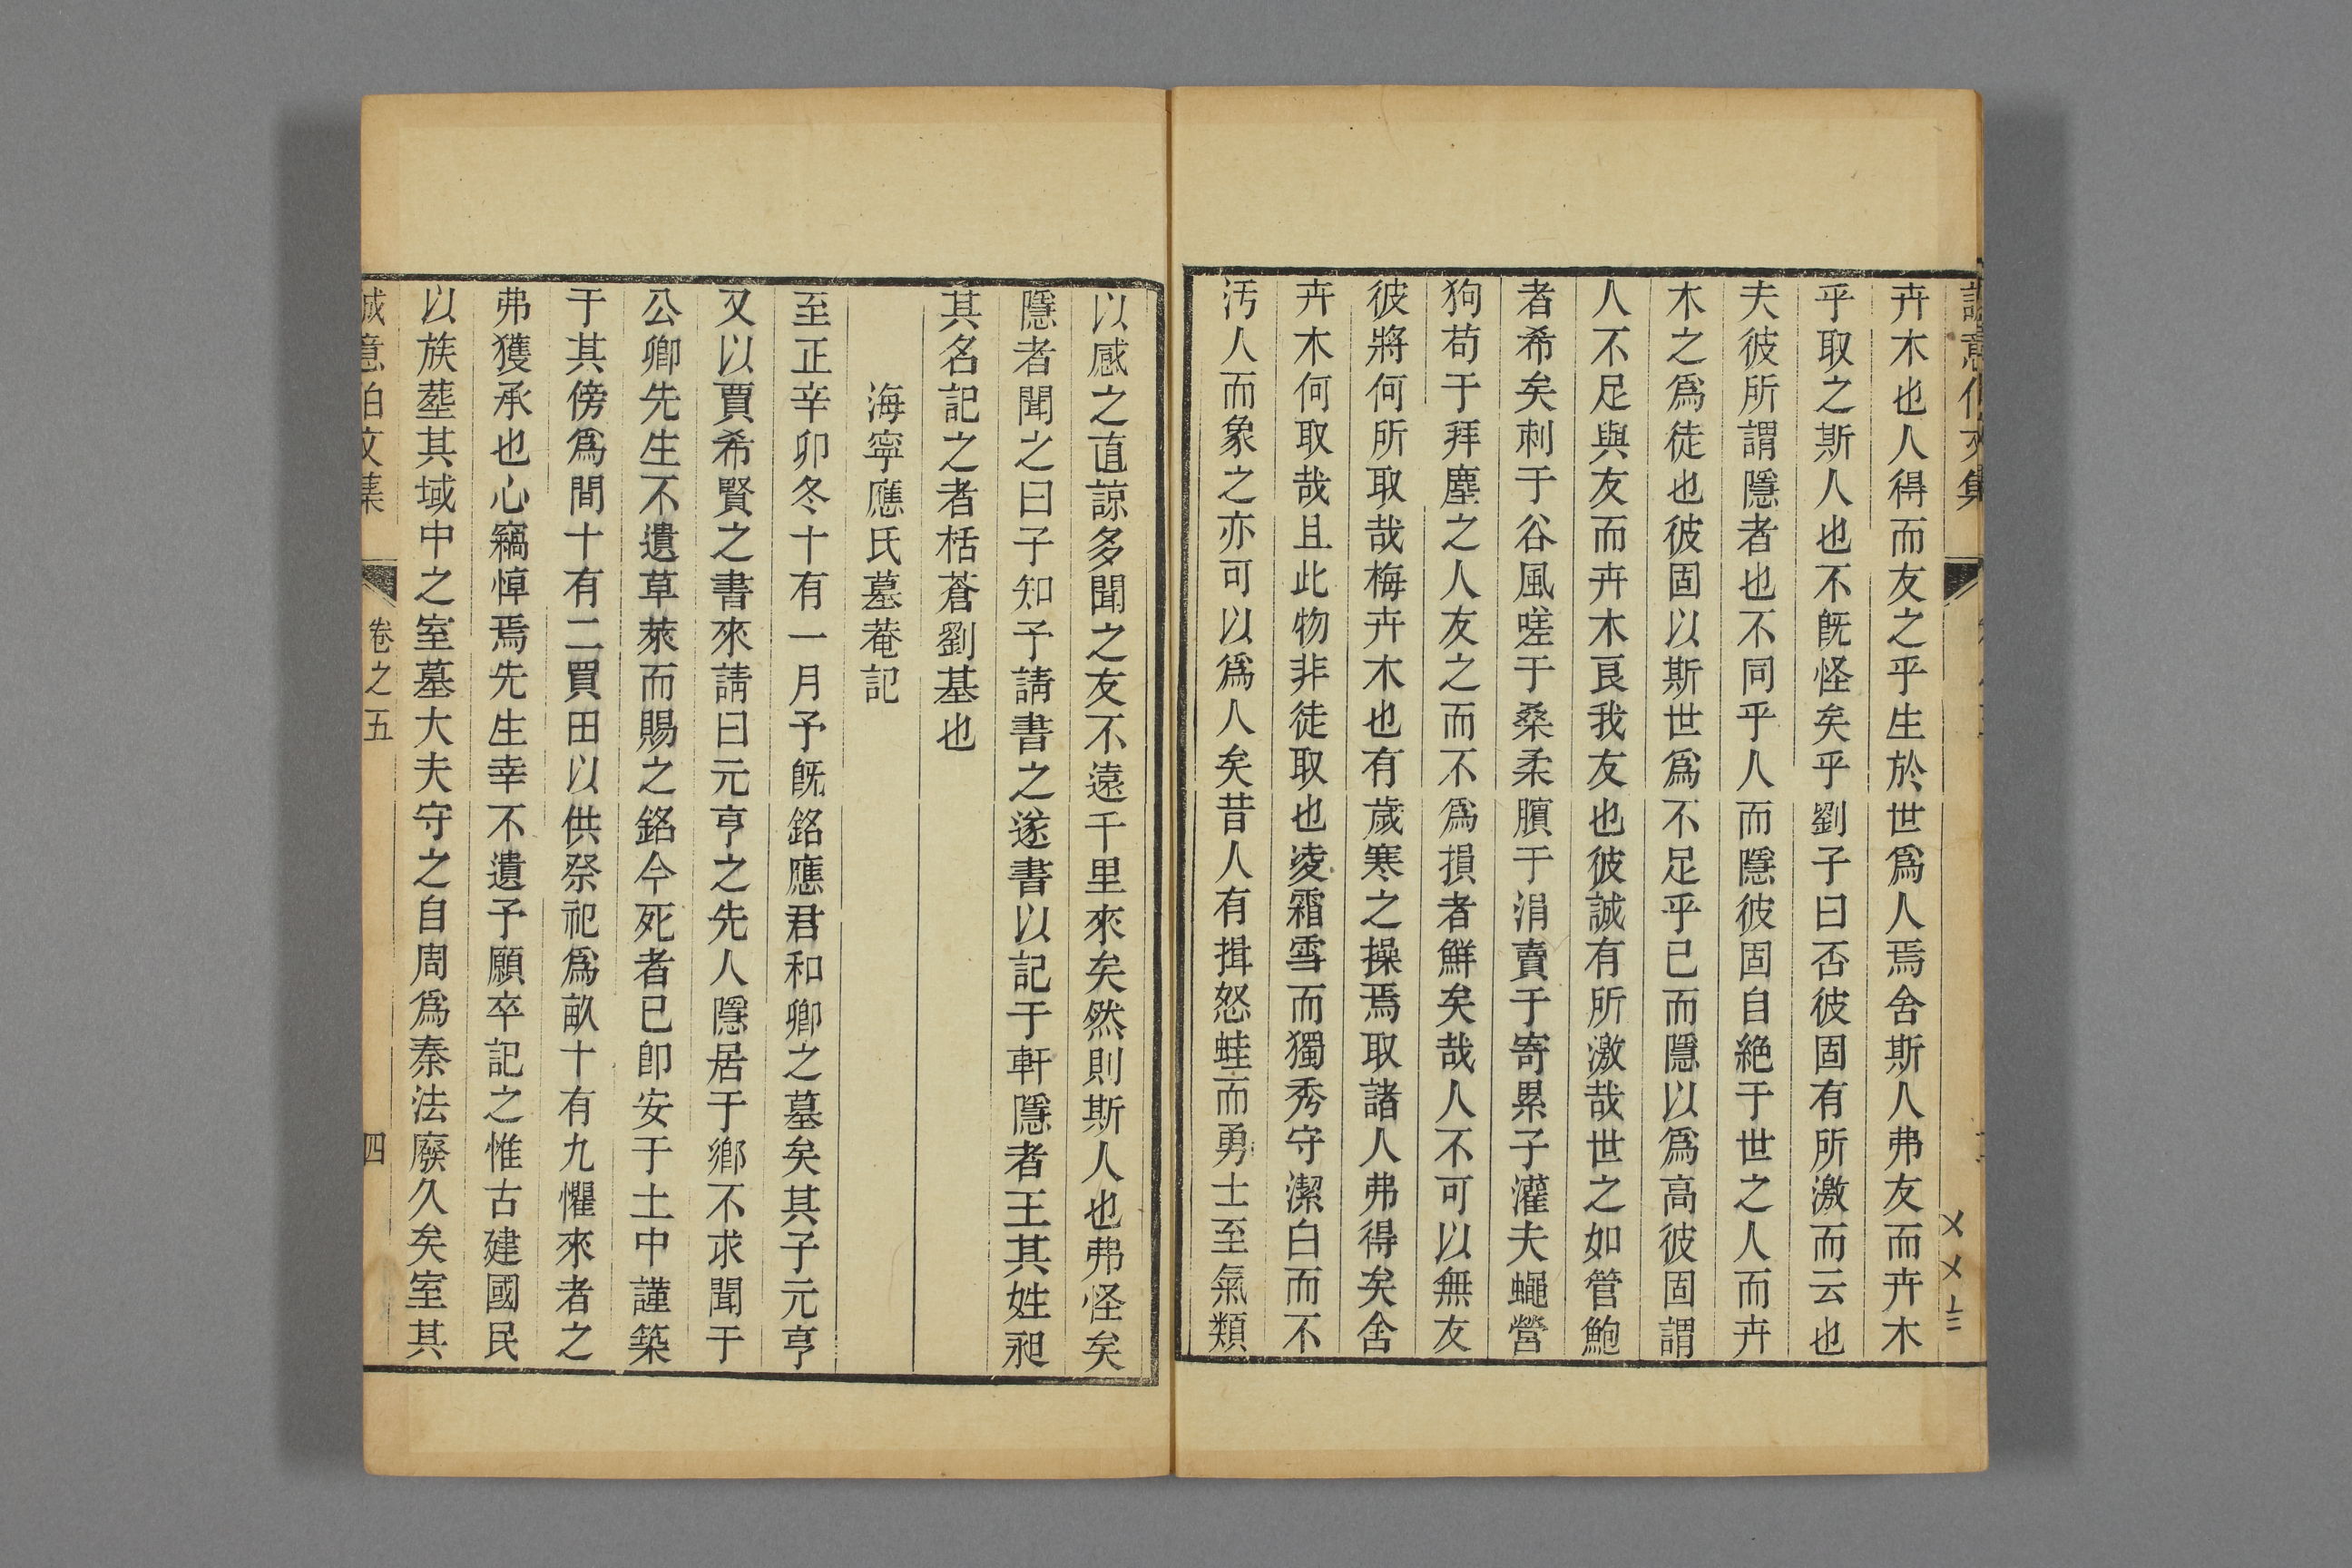 誠意伯文集
卉木也人得而友之乎生於世爲人焉舍斯人弗友而卉木
乎取之斯人也不旣怪矣乎劉子曰否彼固有所激而云也
夫彼所謂隱者也不同乎人而隱彼固自絶于世之人而卉
木之爲徒也彼固以斯世爲不足乎已而隱以爲高彼固謂
人不足與友而卉木良我友也彼誠有所激哉世之如管鮑
者希矣刺于谷風嗟于桑柔臏于涓賣于寄累子灌夫蠅營
狗苟于拜塵之人友之而不爲損者鮮矣哉人不可以無友
彼將何所取哉梅卉木也有歲寒之操焉取諸人弗得矣舍
卉木何取哉且此物非徒取也凌霜雪而獨秀守潔白而不
汚人而象之亦可以爲人矣昔人有揖怒蛙而勇士至氣類
以感之直諒多聞之友不遠千里來矣然則斯人也弗怪矣
隱者聞之曰子知予請書之遂書以記于軒隱者王其姓昶
其名記之者栝蒼劉基也
海寧應氏墓菴記
至正辛卯冬十有一月予旣銘應君和卿之墓矣其子元亨
又以賈希賢之書來請曰元亨之先人隱居于鄉不求聞于
公卿先生不遺草萊而賜之銘今死者已卽安于土中謹築
于其傍爲間十有二買田以供祭祀爲畝十有九懼來者之
弗獲承也心竊悼焉先生幸不遺予願卒記之惟古建國民
以族塟其域中之室墓大夫守之自周爲秦法廢久矣室其
誠意伯文集
卷之五
四